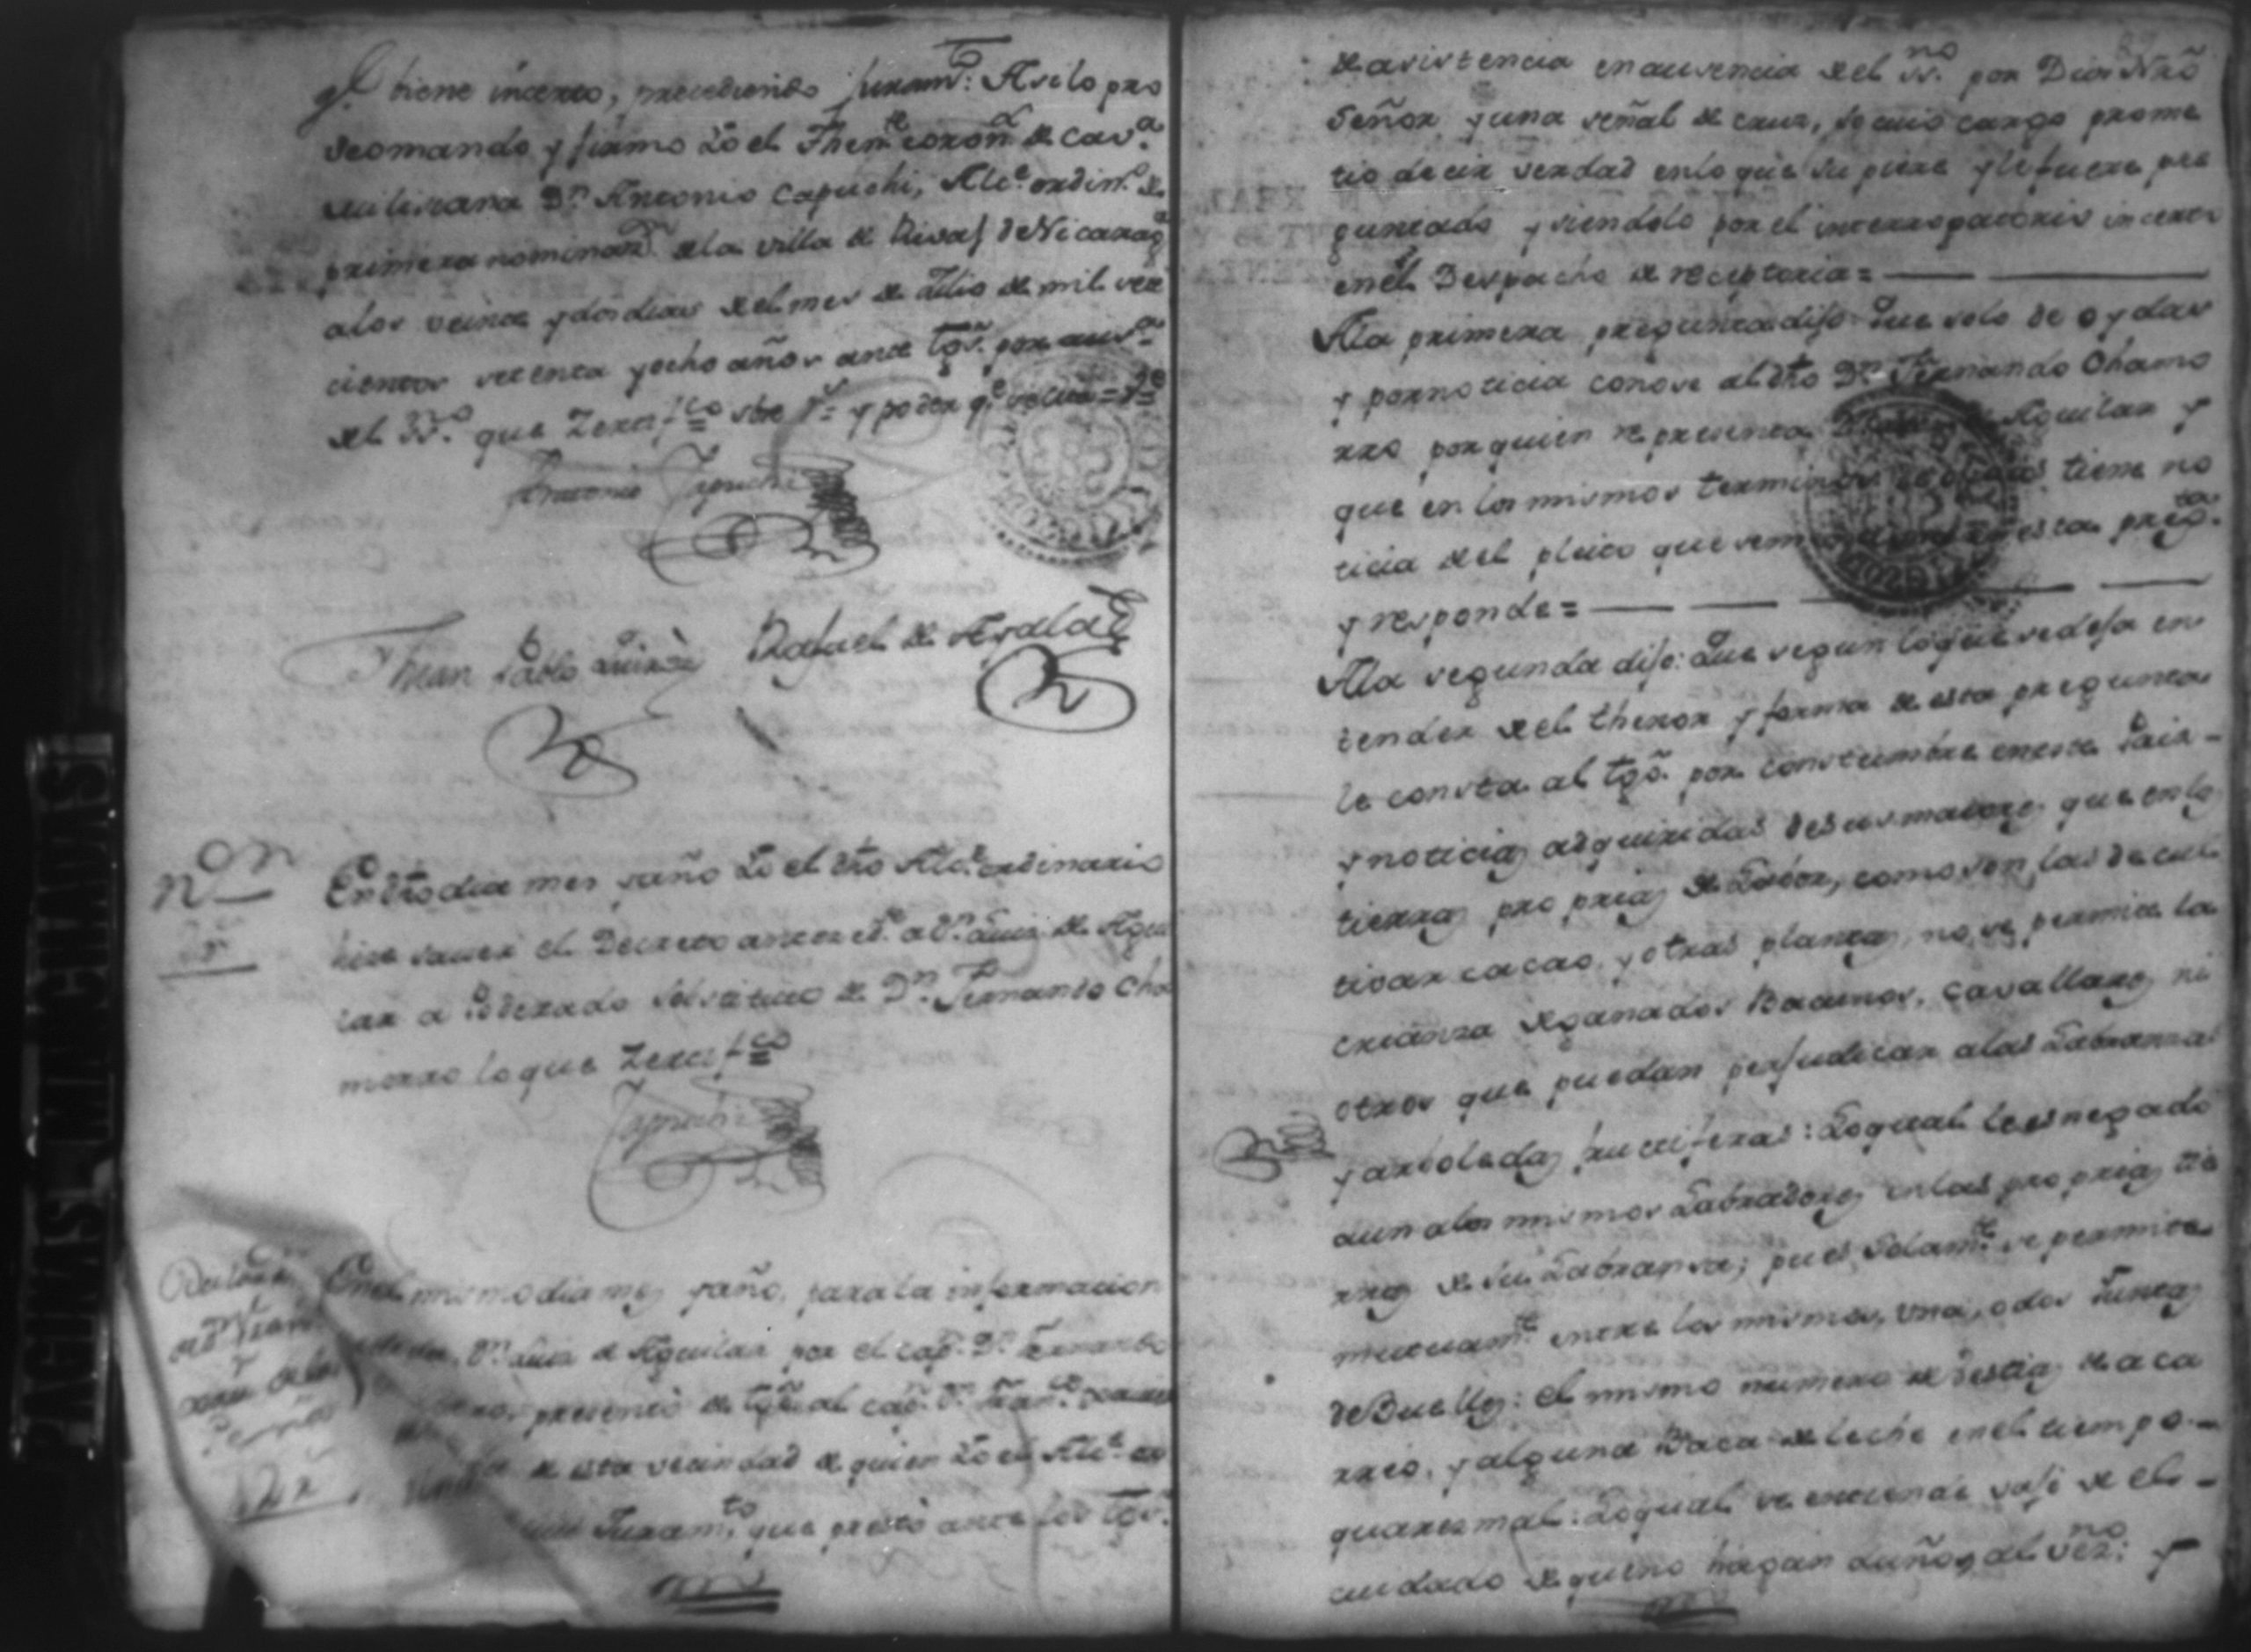 qe. tiene incerto, precediendo juram.to: Asi lo pro
veo mando y firmo Yo el Then.te coron.l de cav.a
miliciana D.n Antonio Capuchi, Alc.e ordin.o de
primera nominaz.n de la villa de Rivas de Nicarag.a
a los veinte y dos dias del mes de Julio de mil sete
cientos setenta y ocho años ante tgos. por aus.a
del SS.no que Zertifco
Antonio Capuchi
Juan Pablo
Rafael de Ayala
non
En dho dia mes y año Yo el dho Alc.e ordinario
hise saver el Decreto anteced.te a D.n Luis de Agui
lar apoderado sostituto de D.n Fernando Cha
morro lo que Zertifco
Capuchi
En el mismo dia mes y año, para la informacion
D.n Luis de Aguilar por el cap.n D.n Fernando
presentó de tgo. al cap.n D.n Fran.co
de esta vecindad de quien Yo el Alc.e
Juram.to que prestó ante los tgos.
de asistencia en ausencia del SS.no por Dios Nrõ
Señor y una señal de cruz, so cuio cargo prome
tio decir verdad en lo que supiere y le fuere pre
guntado y siendolo por el interrogatorio incerto
en el Despacho de receptoria=
A la primera pregunta dijo: Que solo de oydas
y por noticia conose al dho D.n Fernando Chamo
rro por quien representa Aguilar y
que en los mismos terminos tiene no
ticia del pleito que esta preg.ta
y responde=
A la segunda dijo: Que segun lo que se deja en
tender del thenor y forma de esta pregunta
le consta al tgo. por constumbre en este Pais-
y noticias adquiridas de sus maiores que en las
tierras proprias de Labor, como son las de cul
tivar cacao, y otras plantas, no se permite la
crianza de ganados Bacunos, cavallares ni
otros que puedan perjudicar a las Labranzas
y arboledas fructiferas: Lo qual les es negado
aun a los mismos Labradores en las proprias tie
rras de su Labransa; pues solam.te se permite
mutuam.te entre los mismos, una, o dos Juntas
de Bueyes: el mismo numero de bestias de aca
rreo, y alguna Baca de leche en el tiempo-
quaresmal: Lo qual se entiende vajo de el-
cuidado de que no hagan daños al vez.no: y